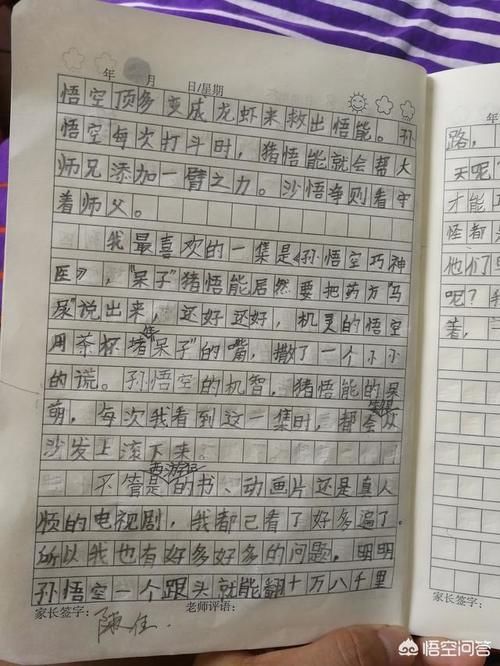 年 月 日/星期
悟空顶多变成龙虾来救出悟能。孙
悟空每次打斗时，猪悟能就会帮大
师兄添加一臂之力。沙悟净则看守
着师父。
我最喜欢的一集是《孙悟空巧神
医》，“呆子”猪悟能居然要把药方“马
尿”说出来，还好还好，机灵的悟空
用茶杯堵呆子”的嘴，撒了一个小小
的谎。孙悟空的机智，猪悟能的呆
萌，每次我看到这一集时，都会从
沙发上滚下来。
西游记
不管是的书、动画片还是真人
频的电视剧，我都已看了好多遍了。
所以我也有好多好多的问题，明明
孙悟空一个跟头就能翻十万八千里
家长签字： 老师评语：
年
路，
天呢
才能
怪都
他们
呢？
着，
悟空问答